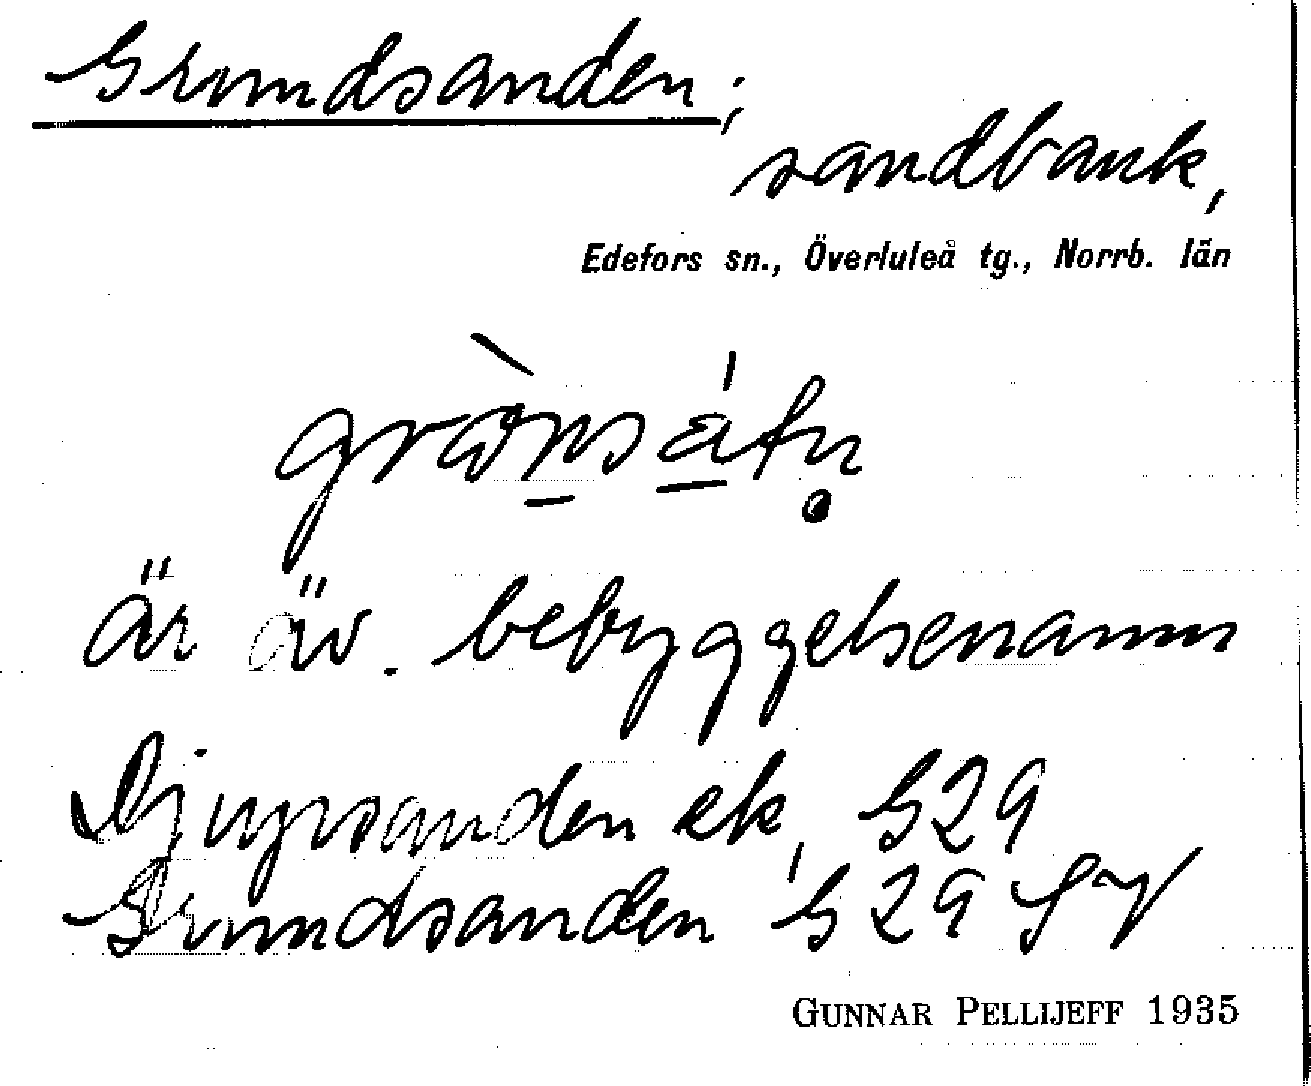 Grundsanden;
sandbank,
Edefors sn., Överluleå tg., Norrb. län
Är äv. bebyggelsenamn
Djupsanden ek, G29
Grundsanden G29 SV
GUNNAR PELLIJEFF 1935